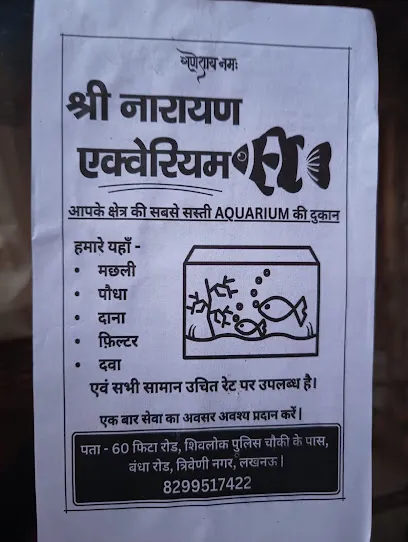 गणेशाय नमः
श्री नारायण
एक्वेरियम
आपके क्षेत्र की सबसे सस्ती AQUARIUM की दुकान
हमारे यहाँ -
• मछली
• पौधा
• दाना
• फ़िल्टर
• दवा
एवं सभी सामान उचित रेट पर उपलब्ध है।
एक बार सेवा का अवसर अवश्य प्रदान करें |
पता - 60 फिटा रोड, शिवलोक पुलिस चौकी के पास,
बंधा रोड, त्रिवेणी नगर, लखनऊ |
8299517422